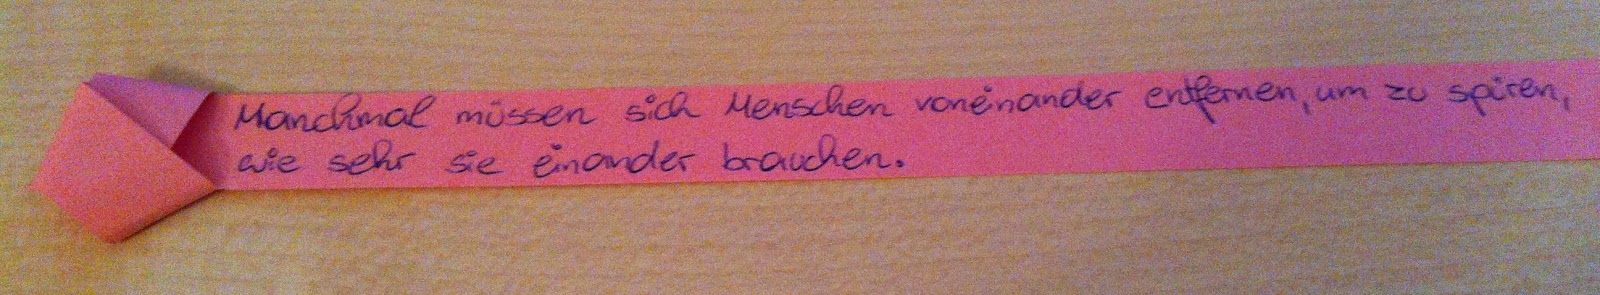 Manchmal müssen sich Menschen voneinander entfernen, um zu spüren,
wie sehr sie einander brauchen.